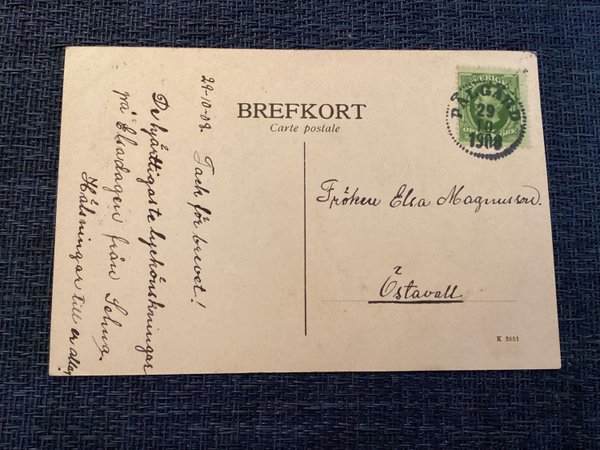 BREFKORT
Carte postale
29-10-08. Tack för brevet!
De hjärtligaste lyckönskningar
på Elsadagen från Selma.
Hälsningar till er alla
SVERIGE
29
10
1908
Fröken Elsa Magnusson.
Östavall
K 3851